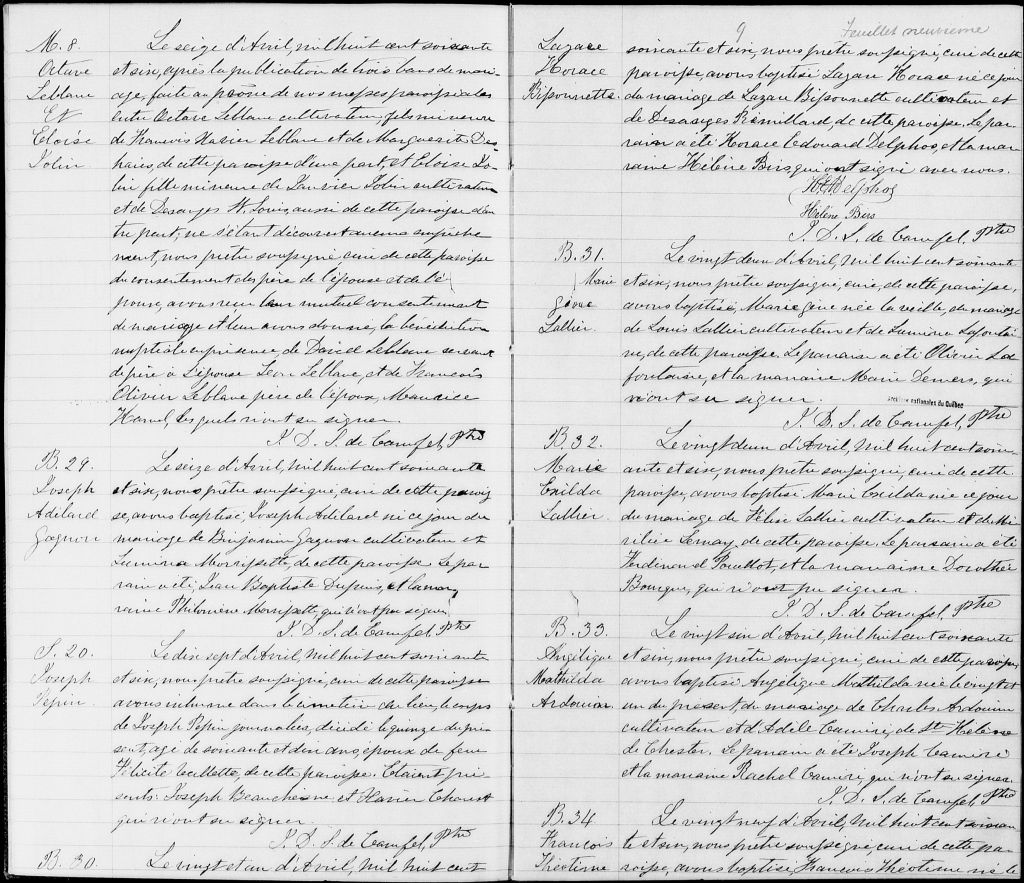 M. 8.
Octave
Leblanc
Et
Eloïse
Le seize d'Avril, mil huit cent soixante
et six, après la publication de trois bans de mari-
age, faite au prône de nos messes paroissiales
entre Octave Leblanc cultivateur, fils mineur
de François Xavier Leblanc et de Marguerite Des
hais, de cette paroisse d'une part, et Eloïse
fille mineure de cultivateur
et de Desanges St. Louis, aussi de cette paroisse d'au
tre part; ne s'étant découvert aucun empêche
ment, nous prêtre soussigné, curé de cette paroisse
du consentement des père de l'épouse et de l'é
poux, avons reçu leur mutuel consentement
de mariage et leur avons donné, la bénédiction
nuptiale en présence, de David Leblanc servant
de père à l'épouse Léon Leblanc, et de François
Olivier Leblanc père de l'époux, Maurice
Hamel, lesquels n'ont su signer.
J. D. S. de Ptre
B. 29.
Joseph
Adélard
Gagnon
Le seize d'Avril, mil huit cent soixante
et six, nous prêtre soussigné, curé de cette parois
se, avons baptisé, Joseph Adélard né ce jour du
mariage de Benjamin Gagnon cultivateur et
Lumina Morrissette, de cette paroisse. Le par
rain a été, Jean Baptiste Dupuis, et la mar
raine Philomène Morrissette, qui n'ont pu signer
J. D. S. de Ptre
S. 20.
Joseph
Pépin
Le dix sept d'Avril, mil huit cent soixante
et six, nous prêtre soussigné, curé de cette paroisse
avons inhumé dans le cimetière du lieu, le corps
de Joseph Pépin journalier, décédé le quinze du pré
sent, âgé de soixante et dix ans, époux de feue
Félicité de cette paroisse. Etaient pré
sents: Joseph Beauchesne et Xavier
qui n'ont su signer.
J. D. S. de Ptre
B. 30.
Le vingt et un d'Avril, mil huit cent
9
Feuillet neuvième
Lazare
Horace
Bissonnette.
soixante et six, nous prêtre soussigné, curé de cette
paroisse, avons baptisé Lazare Horace né ce jour
du mariage de Lazare Bissonnette cultivateur et
de Desanges Rémillard, de cette paroisse. Le par-
rain a été Horace Edouard Delphos, et la mar
raine Hélène Birs qui ont signé avec nous.
H. E. Delphos
Hélène Birs
J. D. S. de Ptre
B. 31.
Marie
Lallier.
Le vingt deux d'Avril, mil huit cent soixante
et six, nous prêtre soussigné, curé, de cette paroisse,
avons baptisé, Marie née la veille, du mariage
de Louis Lallier cultivateur et de Lumina Lafontai
ne, de cette paroisse. Le parrain a été Olivier La
fontaine, et la marraine Marie Demers, qui
n'ont su signer.
Archives nationales du Québec
J. D. S. de Ptre
B. 32.
Marie
Exilda
Lallier.
Le vingt deux d'Avril, mil huit cent soix-
ante et six, nous prêtre soussigné, curé de cette
paroisse, avons baptisé Marie Exilda née ce jour
du mariage de Félix Lallier cultivateur et d'
Lemay, de cette paroisse. Le parrain a été
Ferdinand et la marraine Dorothée
qui n'ont pu signer.
J. D. S. de Ptre
B. 33.
Angélique
Mathilda
Ardouin
Le vingt six d'Avril, mil huit cent soixante
et six, nous prêtre soussigné, curé de cette paroisse,
avons baptisé Angélique Mathilda née le vingt et
un du présent, du mariage de Charles Ardouin
cultivateur et d'Adèle Camiré, de Ste Hélène
de Chester. Le parrain a été Joseph Camiré
et la marraine Rachel Camiré, qui n'ont su signer.
J. D. S. de Ptre
B. 34
François
Théotime
Le vingt neuf d'Avril, mil huit cent soixan
te et six, nous prêtre soussigné, curé de cette pa
roisse, avons baptisé, François Théotime né le